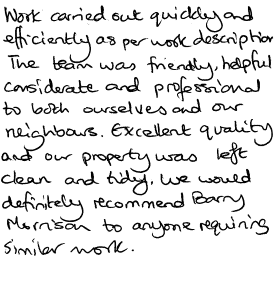 Work carried out quickly and
efficiently as per work description
The team was friendly, helpful
considerate and professional
to both ourselves and our
neighbours. Excellent quality
and our property was left
clean and tidy, we would
definitely recommend Barry
Morrison to anyone requiring
similar work.